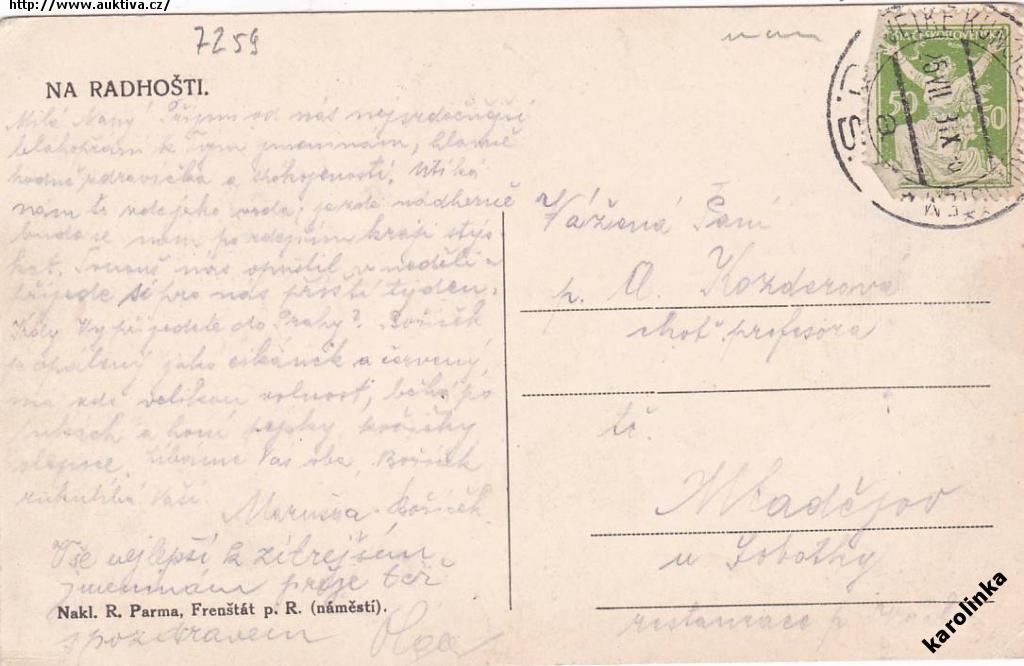 http://www.auktiva.cz/
7259
NA RADHOŠTI.
Milá Nany! Přijmi od nás nejsrdečnější
blahopřání k Tvým jmeninám, hlavně
hodně zdravíčka a spokojenosti. Utíká
nám to zde jako voda; je zde nádherně
bude se nám po zdejším kraji stýs-
kat. nás opustil v neděli a
přijede si pro nás příští týden.
Kdy Vy přijedete do Prahy? Bošíček
opálený jako cikánek a červený,
má zde velikou volnost, běhá po
a honí pejsky, kočičky
slepice. Líbáme Vás oba, Bošíček
ruku líbá Vaši
Maruška Bošíček.
Vše nejlepší k zítřejším
jmeninám přeje též
s pozdravem Olga
Nakl. R. Parma, Frenštát p. R. (náměstí).
ČESKOSLOVENSKÁ
50 50
Vážená Paní
p. A. Kozderová
choť profesora
tč.
Mladějov
u Sobotky
restaurace p.
karolinka